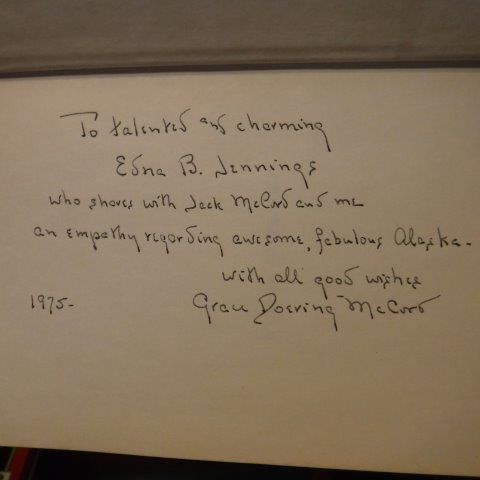 To talented and charming
Edna B. Jennings
who shares with Jack McCord and me
an empathy regarding awesome, fabulous Alaska -
with all good wishes
1975- Grace Doering McCord